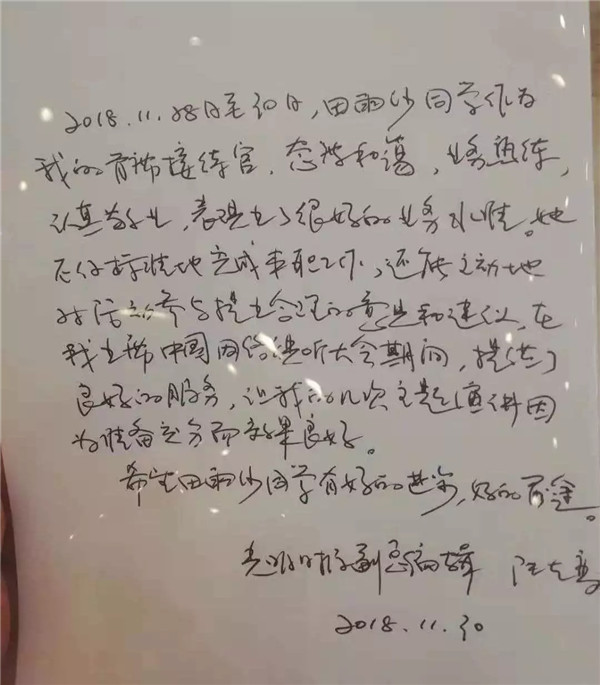 2018.11.28日至30日,田雨沙同学作为
我的首席接待官,态度和蔼,业务熟练,
认真敬业,表现出了很好的业务水准。她
不仅标准地完成本职工作,还能主动地
对活动参与提出合理的意见和建议,在
我出席中国网络视听大会期间,提供了
良好的服务,让我的几次主题演讲因
为准备充分而效果良好。
希望田雨沙同学有好的进步,好的前途。
光明日报副总编辑 陆先高
2018.11.30